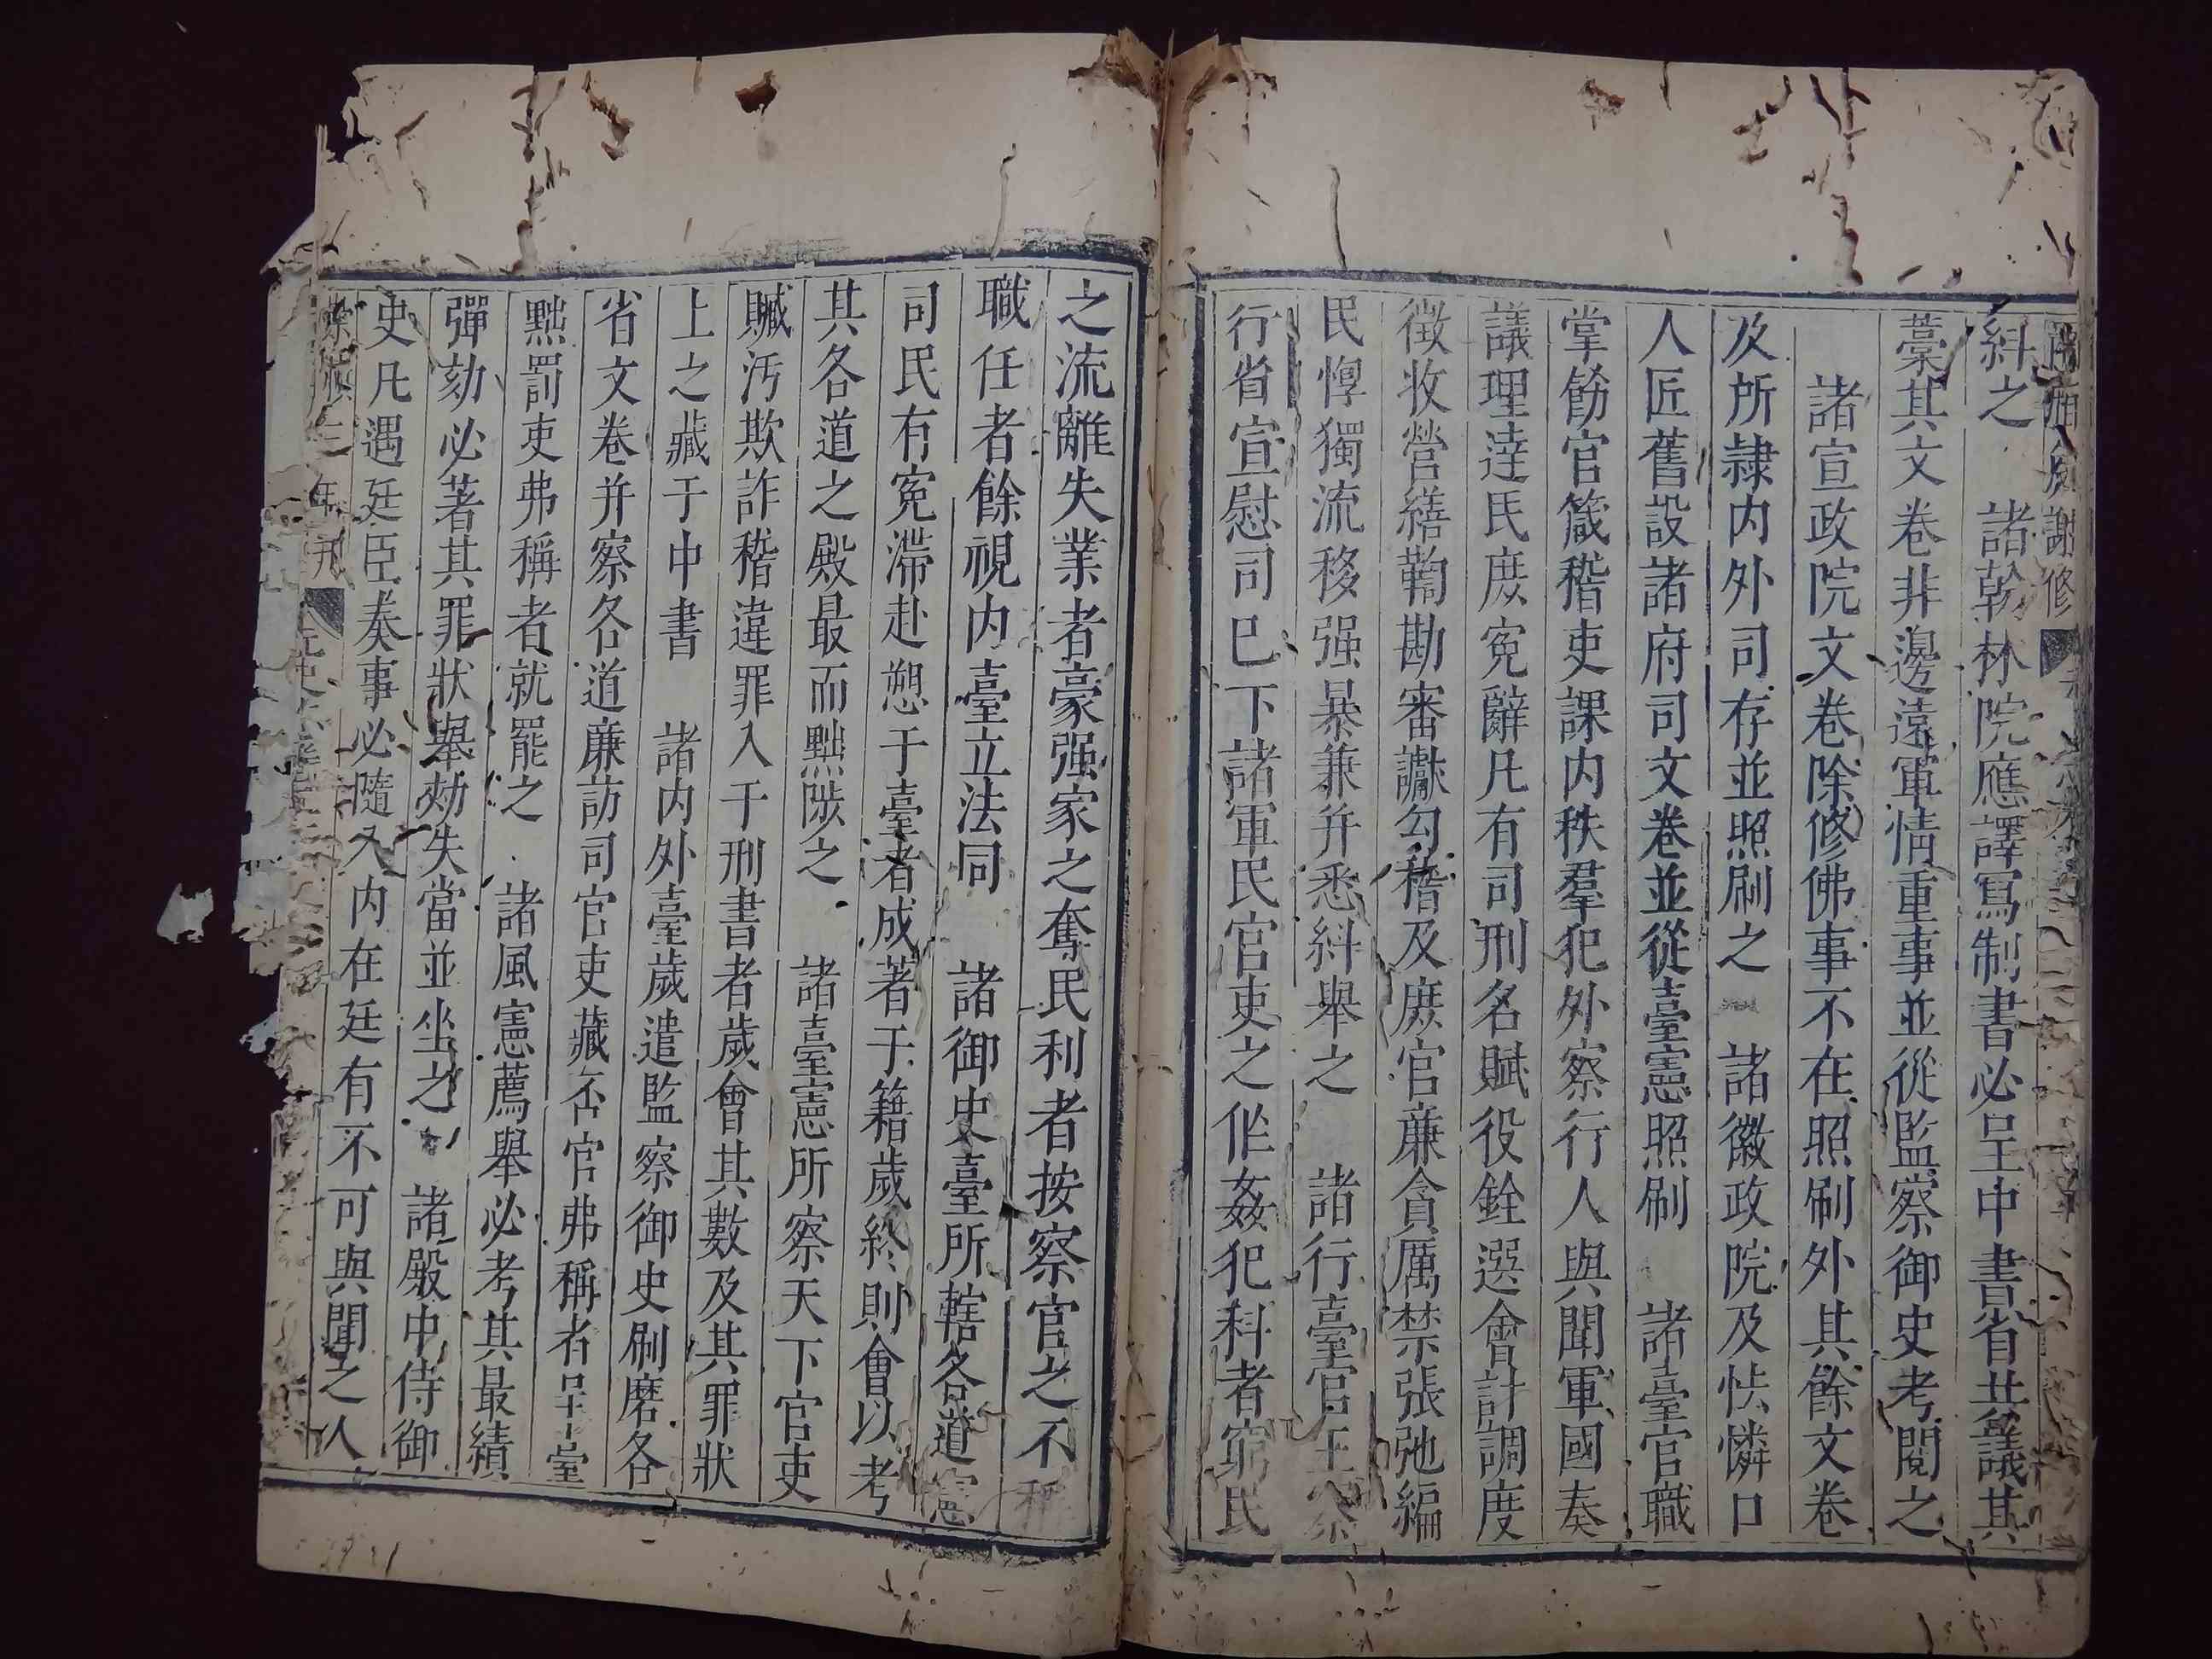 謝修
糾之　諸翰林院應譯寫制書必呈中書省共議其
藁其文卷非邊遠軍情重事並從監察御史考閱之
諸宣政院文卷除修佛事不在照刷外其餘文卷
及所隷内外司存並照刷之　諸徽政院及怯憐口
人匠舊設諸府司文卷並從臺憲照刷　諸臺官職
掌飭官箴稽吏課内秩羣犯外察行人與聞軍國奏
議理逹民庶寃辭凡有司刑名賦役銓選會計調度
徵收營繕鞫勘審讞勾稽及庶官亷貪厲禁張弛編
民惸獨流移强暴兼并悉糾舉之　諸行臺官主察
行省宣慰司巳下諸軍民官吏之作姦犯科者窮民
之流離失業者豪强家之奪民利者按察官之不稱
職任者餘視内臺立法同　諸御史臺所轄各道憲
司民有寃滯赴愬于臺者成著于籍歲終則會以考
其各道之殿最而黜陟之　諸臺憲所察天下官吏
贓汚欺詐稽違罪入于刑書者歲會其數及其罪狀
上之藏于中書　諸内外臺歲遣監察御史刷磨各
省文卷并察各道亷訪司官吏藏否官弗稱者呈臺
黜罰吏弗稱者就罷之　諸風憲薦舉必考其最績
彈劾必著其罪狀舉劾失當並坐之　諸殿中侍御
史凡遇廷臣奏事必隨入内在廷有不可與聞之人
三年刊